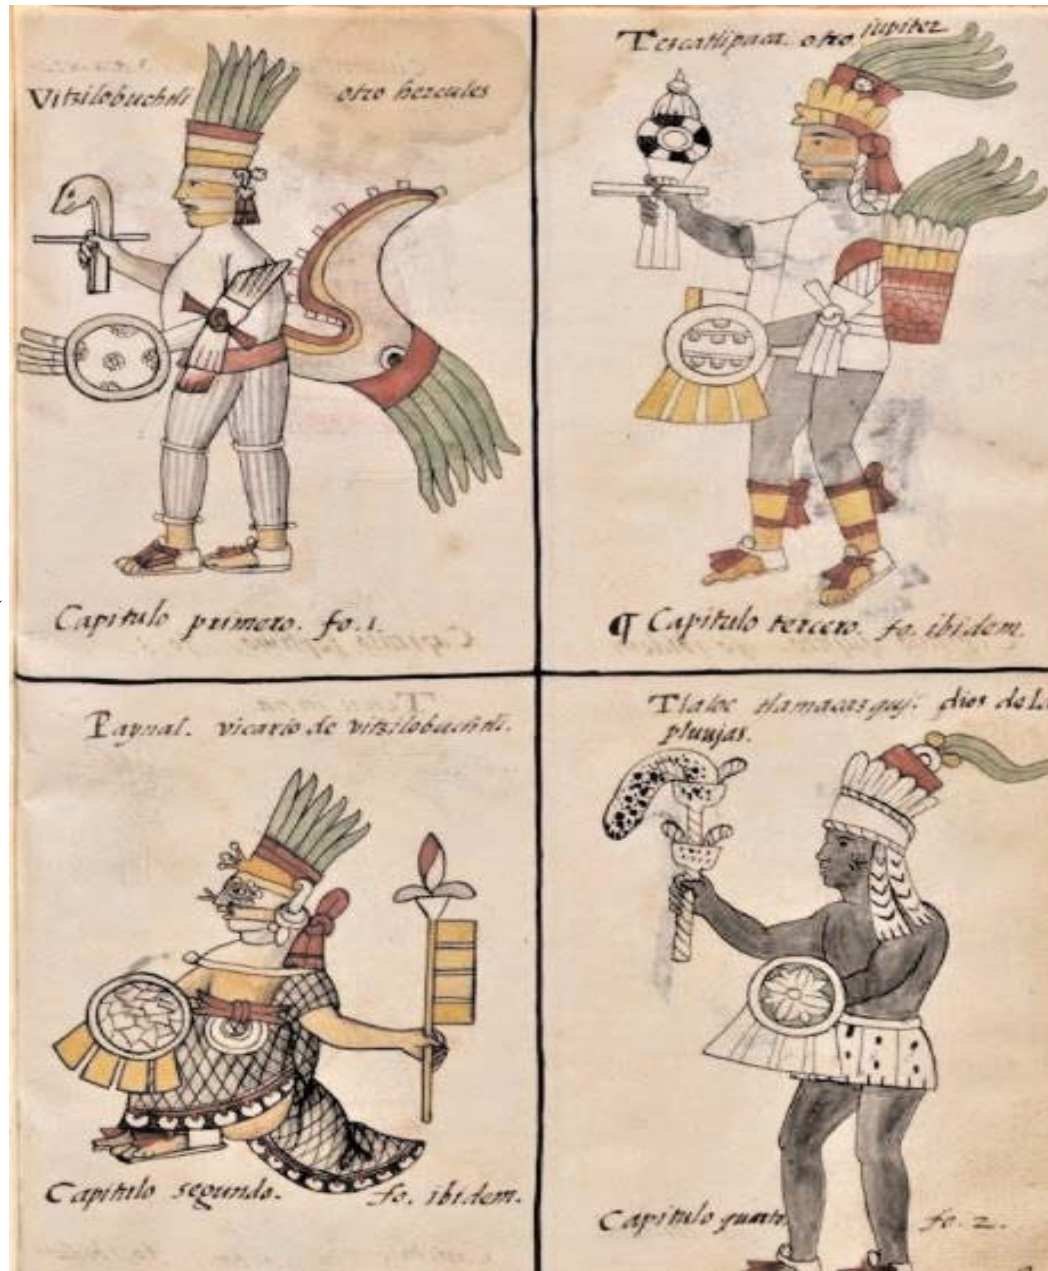 Vitzilobuchtli otro hercules
Capitulo primero. fo. 1.
Tezcatlipaca. otro jupiter
¶ Capitulo tercero. fo. ibidem.
Paynal. vicario de vitzilobuchtli.
Capitulo segundo. fo. ibidem.
Tlaloc tlamacazquj. dios de la
pluujas.
Capitulo quarto. fo. 2.